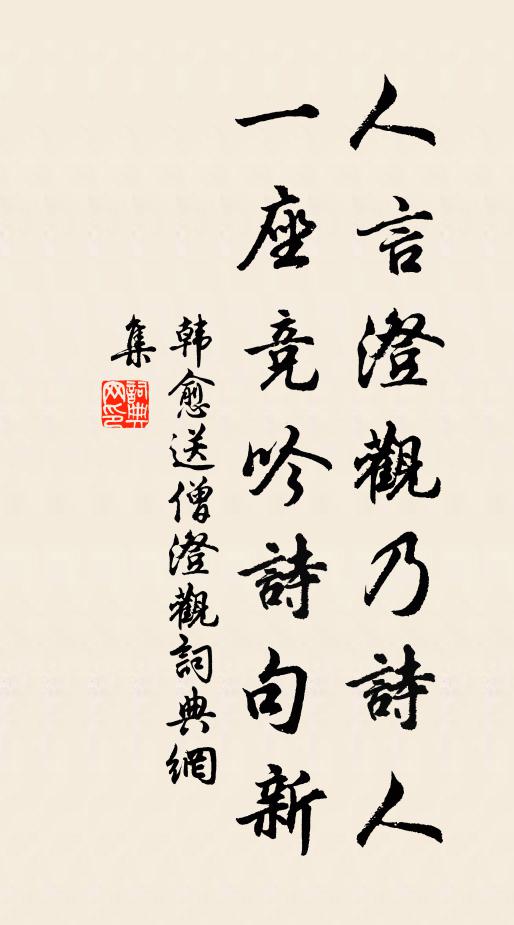 人言澄觀乃詩人
一座竞吟詩句新
韩愈送僧澄觀詞典網
集
詞典網印